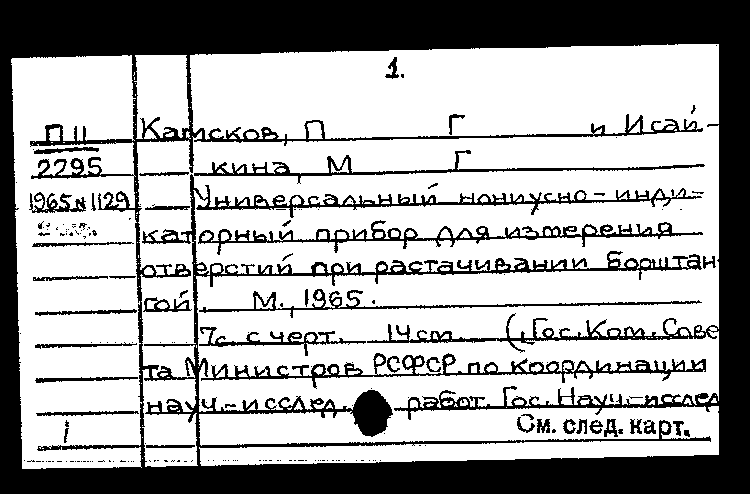 1.
П II Камсков, П Г и Исай-
2295 кина, М Г
1965 N 1129 Универсальный нониусно-инди-
каторный прибор для измерения
отверстий при растачивании борштан-
гой. М., 1965.
7с. с черт. 14 см. (Гос. Ком. Сове
та Министров РСФСР по координации
науч.-исслед. работ. Гос. Науч.-исслед
1 См. след. карт.